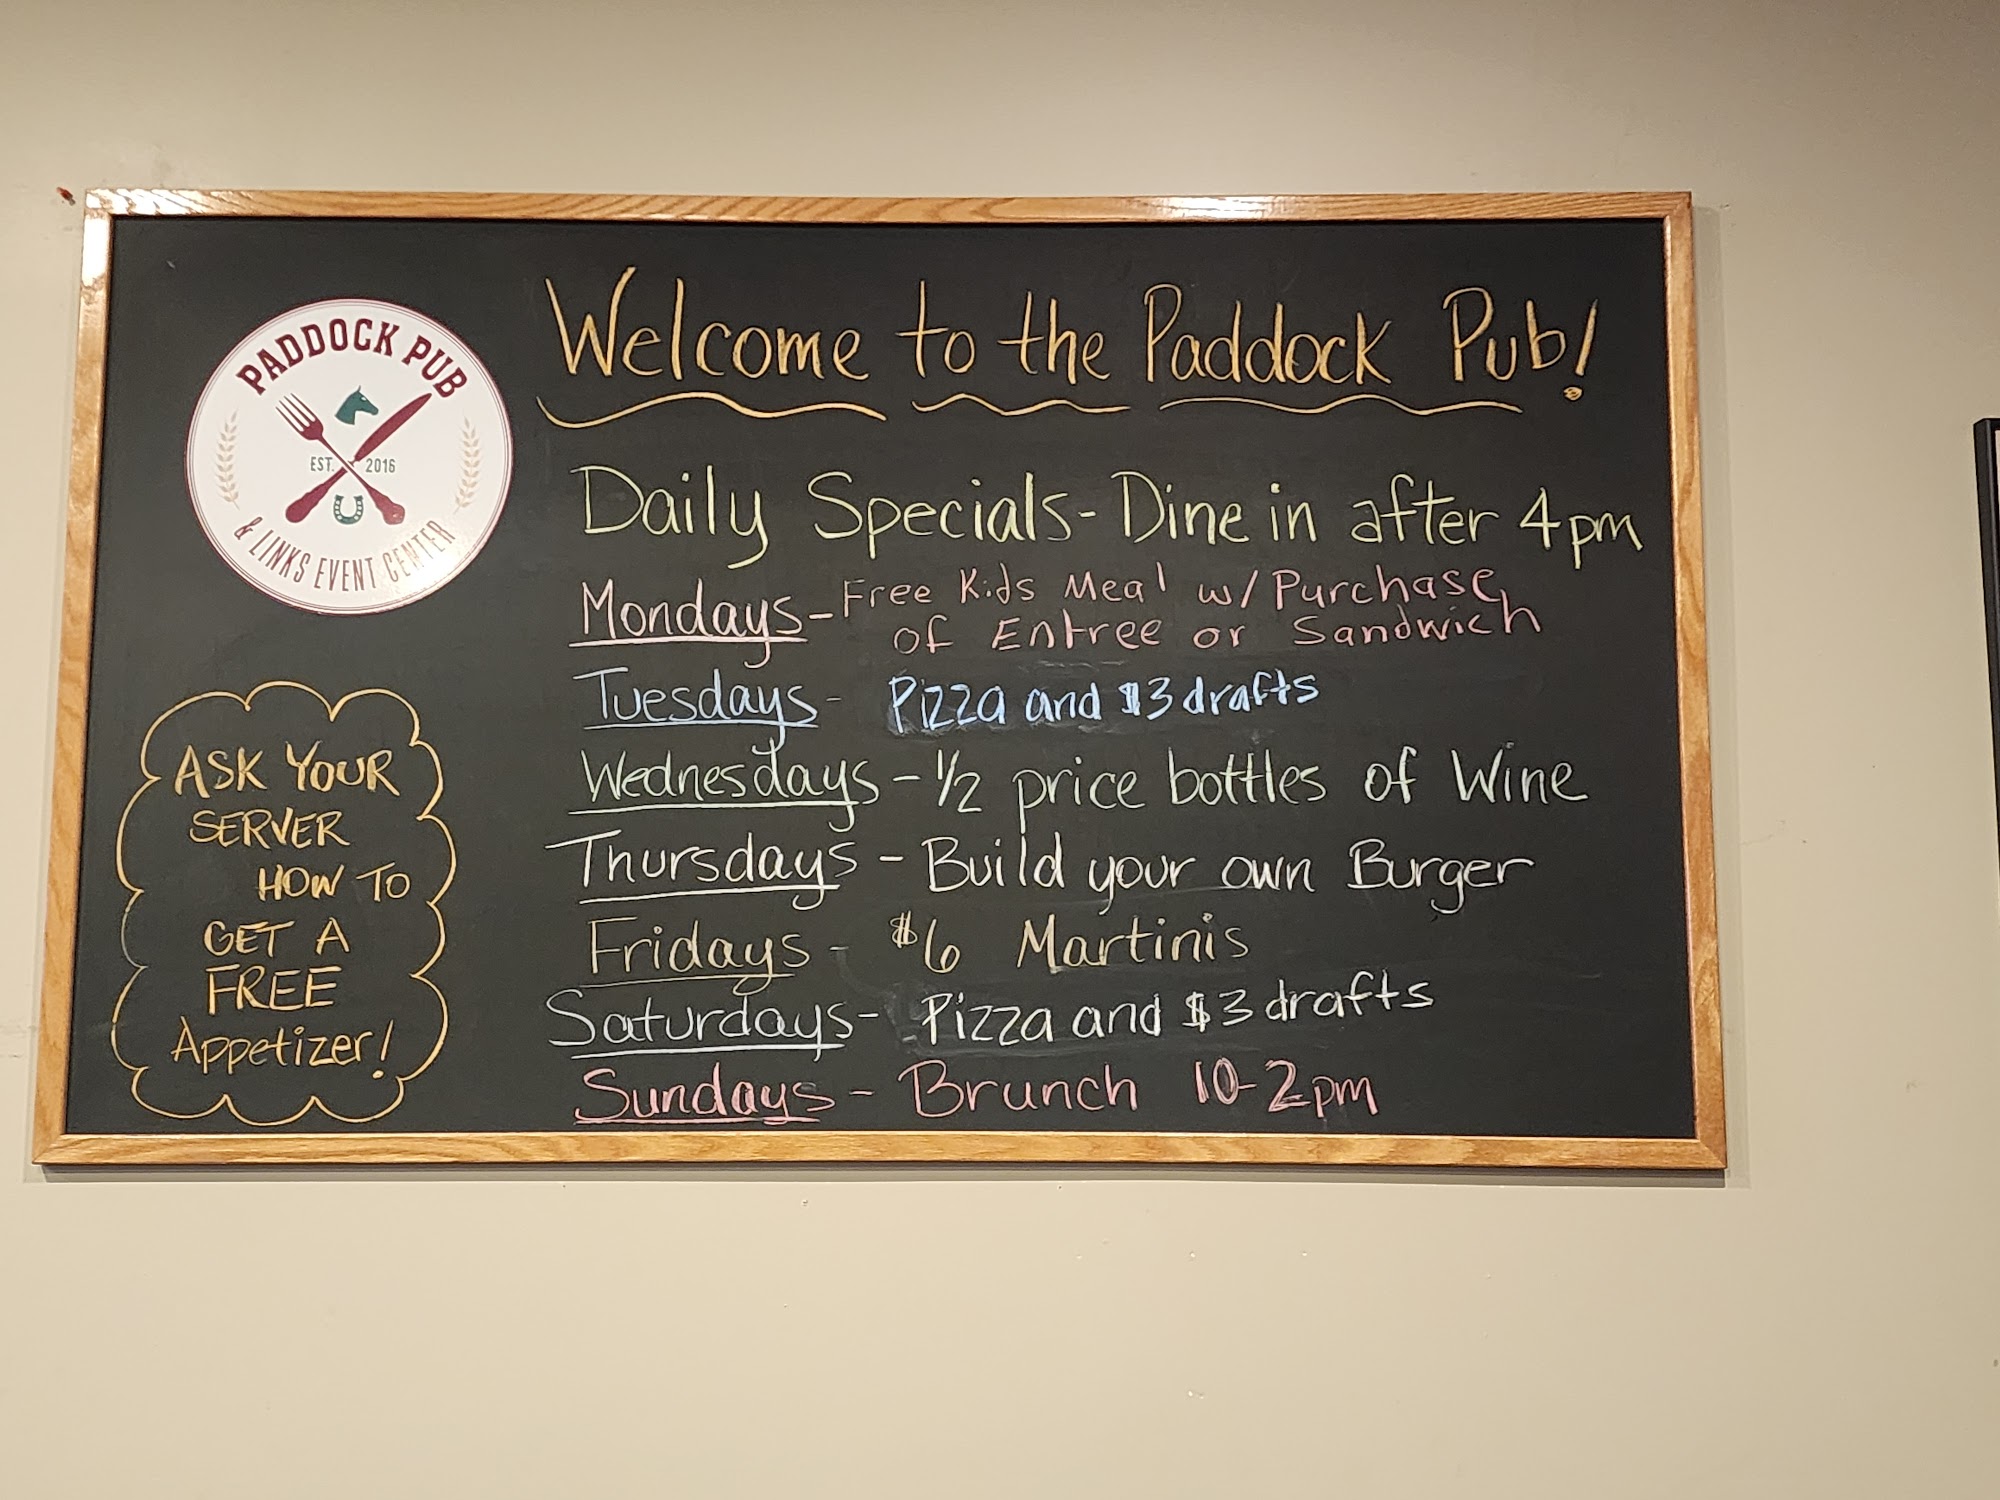 PADDOCK PUB
EST. 2016
& LINKS EVENT CENTER
Welcome to the Paddock Pub!
Daily Specials - Dine in after 4pm
Mondays - Free Kids Meal w/ Purchase
of Entree or Sandwich
Tuesdays - Pizza and $3 drafts
Wednesdays - 1/2 price bottles of Wine
Thursdays - Build your own Burger
Fridays - $6 Martinis
Saturdays - Pizza and $3 drafts
Sundays - Brunch 10-2pm
ASK YOUR
SERVER
HOW TO
GET A
FREE
Appetizer!